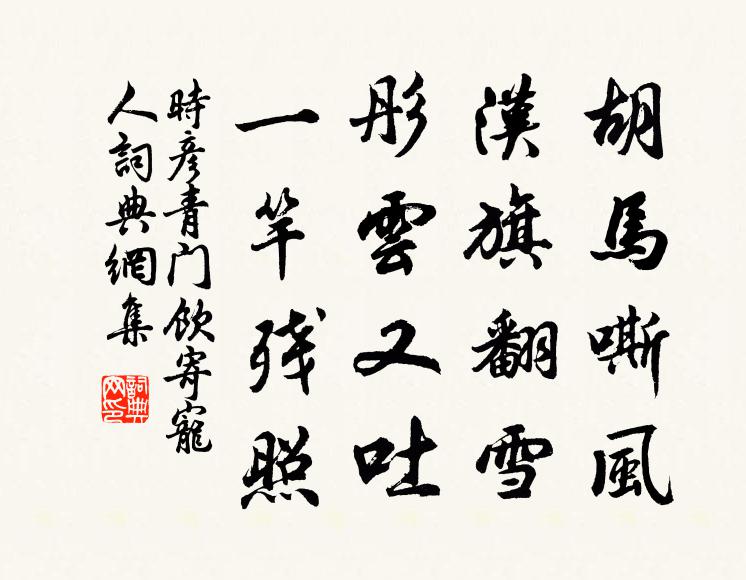 胡馬嘶風
漢旗翻雪
彤雲又吐
一竿残照
時彦青门饮寄寵
人詞典網集
詞典网印